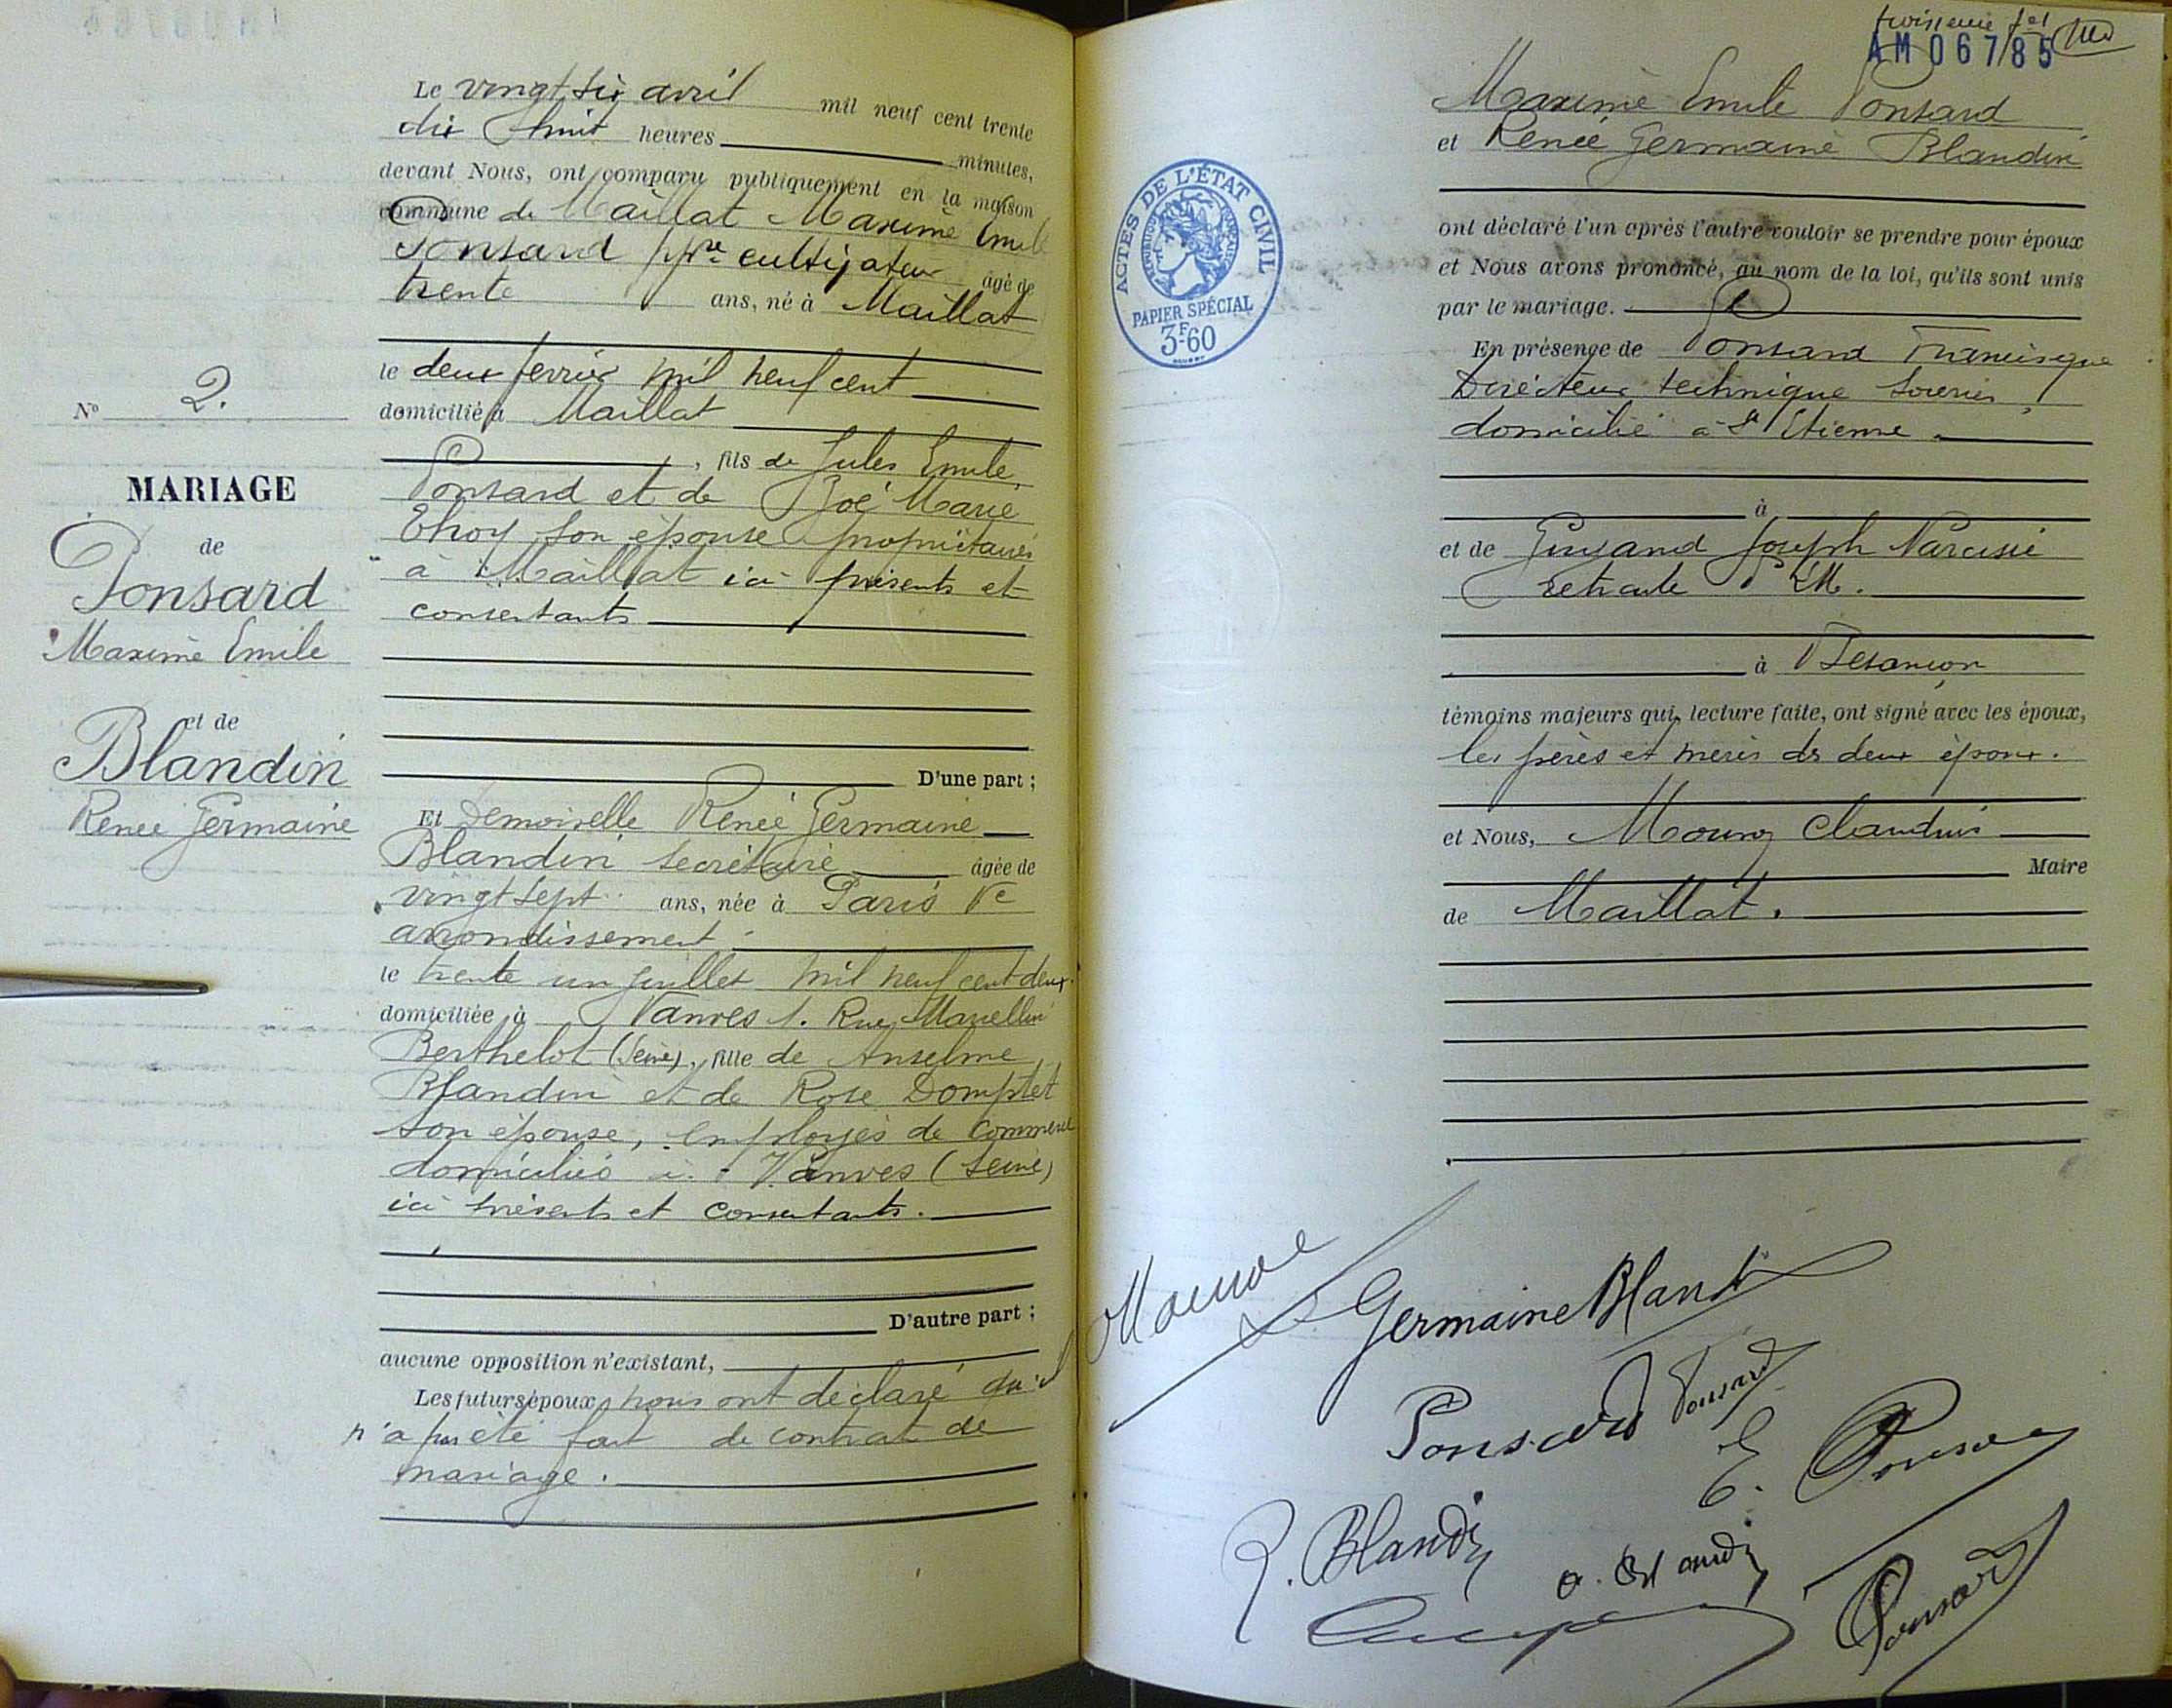 Le vingt six avril mil neuf cent trente
dix huit heures minutes,
devant Nous, ont comparu publiquement en la maison
commune de Maillat Maxime Emile
Ponsard ppre cultivateur âgé de
trente ans, né à Maillat
le deux février mil neuf cent
domicilié à Maillat
, fils de Jules Emile
Ponsard et de Zoé Marie
son épouse propriétaires
à Maillat ici présents et
consentants
D'une part ;
Et Demoiselle Renée Germaine
Blandin secrétaire âgée de
vingt sept ans, née à Paris Ve
arrondissement
le trente un juillet mil neuf cent deux
domiciliée à Vanves 1. Rue Marcellin
Berthelot (Seine), fille de Anselme
Blandin et de Rose Domptet
son épouse, employés de commerce
domiciliés à Vanves (Seine)
ici présents et consentants.
D'autre part ;
aucune opposition n'existant,
Les futurs époux nous ont déclaré qu'il
n'a pas été fait de contrat de
mariage.
No 2.
MARIAGE
de
Ponsard
Maxime Emile
et de
Blandin
Renée Germaine
troisième fet
AM 06785
Maxime Emile Ponsard
et Renée Germaine Blandin
ont déclaré l'un après l'autre vouloir se prendre pour époux
et Nous avons prononcé, au nom de la loi, qu'ils sont unis
par le mariage.
En présence de Ponsard Francisque
Directeur technique soieries
domicilié à St Etienne
à
et de Guyand Joseph Narcisse
retraité
à Besançon
témoins majeurs qui, lecture faite, ont signé avec les époux,
les pères et mères des deux époux.
et Nous, Mouroz Claudius
Maire
de Maillat.
ACTES DE L'ÉTAT CIVIL
RÉPUBLIQUE FRANÇAISE
PAPIER SPÉCIAL
3F60
Germaine Blandin
Ponsard Ponsard
E. Ponsard
R. Blandin
a. Blandin
Ponsard